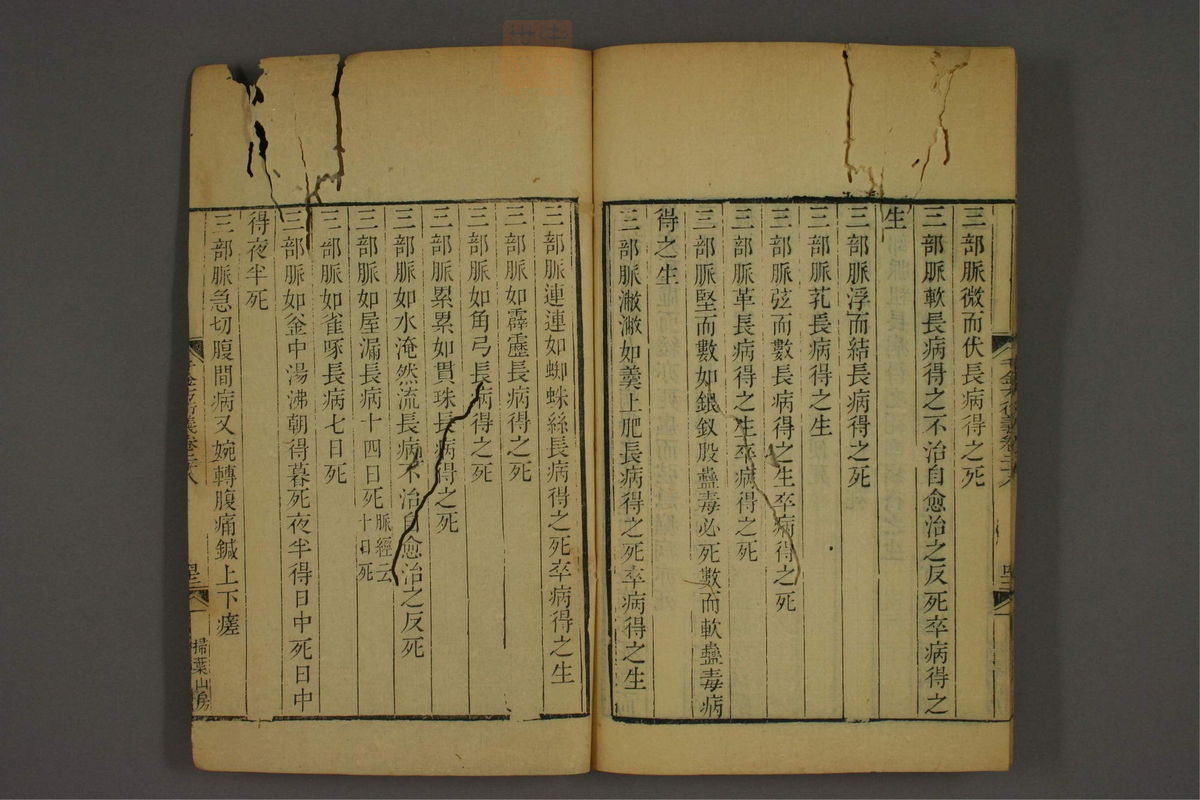 三部脈微而伏長病得之死
三部脈軟長病得之不治自愈治之反死卒病得之
生
三部脈浮而結長病得之死
三部脈芤長病得之生
三部脈弦而數長病得之生卒病得之死
三部脈革長病得之生卒病得之死
三部脈堅而數如銀釵股蠱毒必死數而軟蠱毒病
得之生
三部脈潎潎如羹上肥長病得之死卒病得之生
三部脈連連如蜘蛛絲長病得之死卒病得之生
三部脈如霹靂長病得之死
三部脈如角弓長病得之死
三部脈累累如貫珠長病得之死
三部脈如水淹然流長病不治自愈治之反死
三部脈如屋漏長病十四日死脈經云十日死
三部脈如雀啄長病七日死
三部脈如釜中湯沸朝得暮死夜半得日中死日中
得夜半死
三部脈急切腹間病又婉轉腹痛鍼上下瘥
掃葉山房